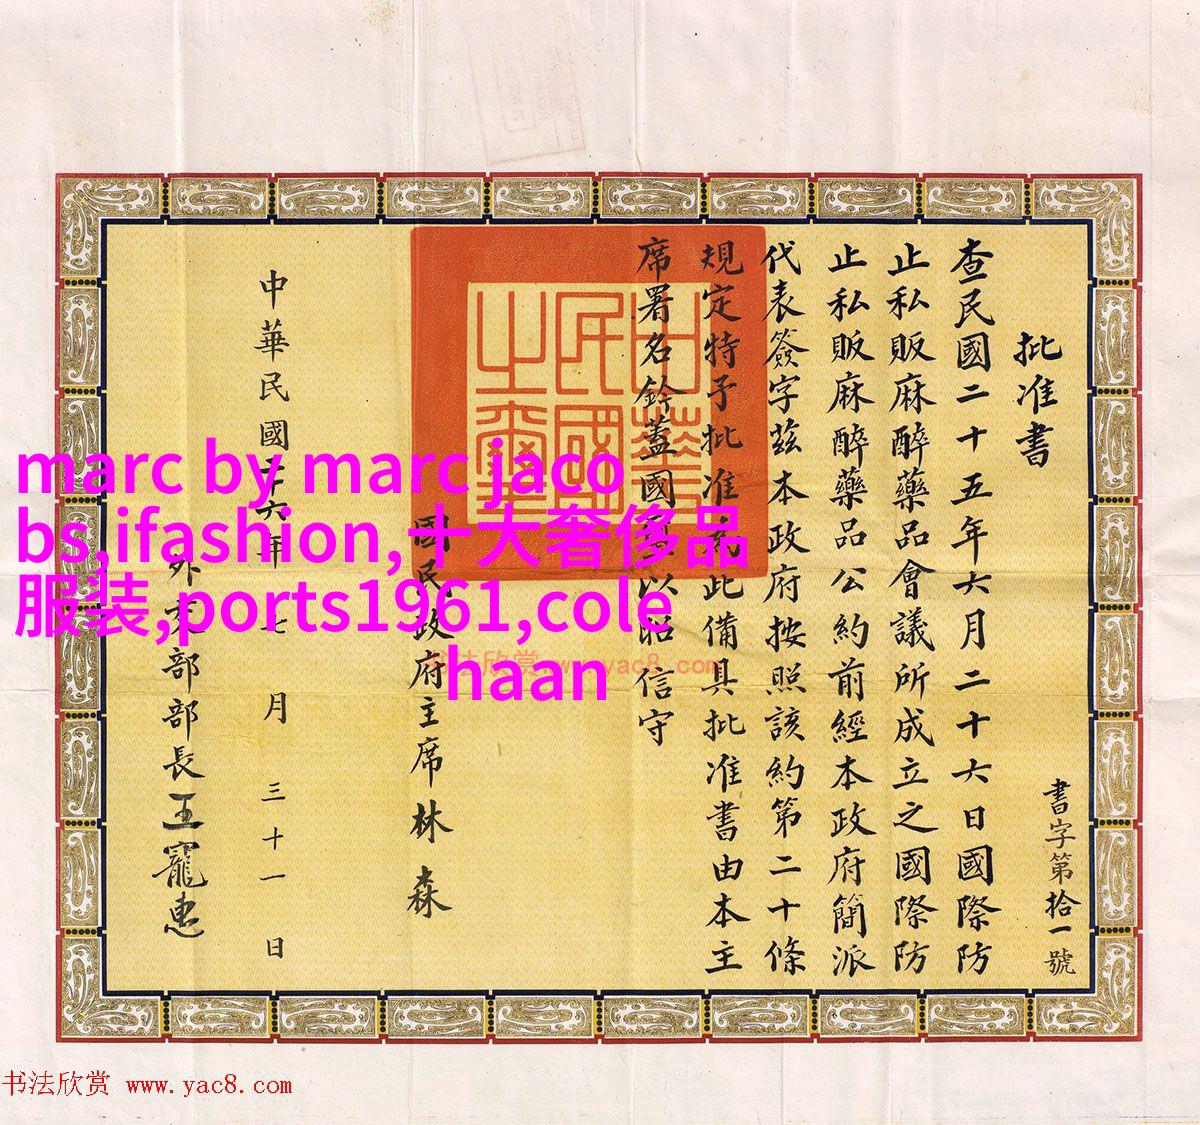 書字第拾一號
批准書
查民國二十五年六月二十六日國際防
止私販麻醉藥品會議所成立之國際防
止私販麻醉藥品公約前經本政府簡派
代表簽字茲本政府按照該約第二十條
規定特予批准爲此備具批准書由本主
席署名鈐蓋國璽以昭信守
中華
民國
之璽
國民政府主席林森
中華民國二十六年七月三十一日
外交部部長王寵惠
marc by marc jaco
bs,ifashion,十大奢侈品
服装,ports1961,cole
haan
书法欣赏 www.yac8.com
书法欣赏 www.yac8.com